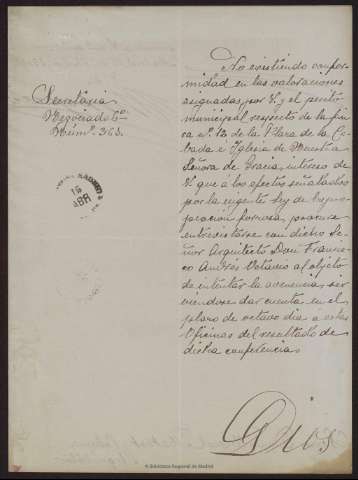 Secretaría
Negociado 6º
Núm.º 363.
16
ABR
No existiendo confor-
midad en las valoraciones
asignadas por V. y el perito
municipal respecto de la fin-
ca nº 12 de la Plaza de la Ce-
bada é Iglesia de Nuestra
Señora de Gracia, intereso de
V. que á los efectos señalados
por la vigente Ley de Expro-
piacion forzosa, procure
entrevistarse con dicho Se-
ñor Arquitecto Don Francis-
co Andres Octavio al objeto
de intentar la avenencia, sir-
viendose dar cuenta en el
plazo de octavo dia á estas
Oficinas del resultado de
dicha conferencia.
Dios
© Biblioteca Regional de Madrid